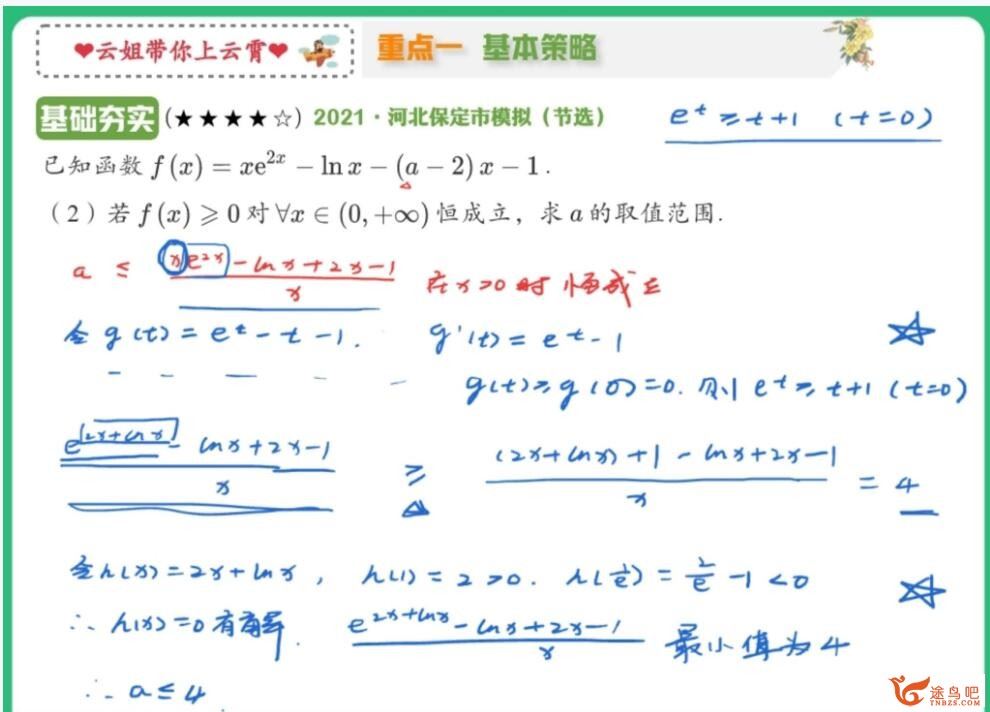 ❤云姐带你上云霄❤ 重点一 基本策略
基础夯实 (★★★★☆) 2021·河北保定市模拟（节选） e^t ≥ t+1 (t=0)
已知函数 f(x) = xe^{2x} − ln x − (a − 2)x − 1 .
（2）若 f(x) ⩾ 0 对 ∀x ∈ (0, +∞) 恒成立，求 a 的取值范围.
a ≤ (xe^{2x} − lnx + 2x − 1)/x 在x>0时 恒成立
令 g(t) = e^t − t − 1. g'(t) = e^t − 1 ☆
g(t) ≥ g(0) = 0. 则 e^t ≥ t+1 (t=0)
(e^{(2x+lnx)} − lnx + 2x − 1)/x ≥ ((2x+lnx) + 1 − lnx + 2x − 1)/x = 4
令h(x) = 2x + lnx , h(1) = 2 > 0. h(1/e) = 2/e − 1 < 0 ☆
∴ h(x) = 0 有解. (e^{2x+lnx} − lnx + 2x − 1)/x 最小值为4
∴ a ≤ 4
途鸟吧
TNBZS.COM